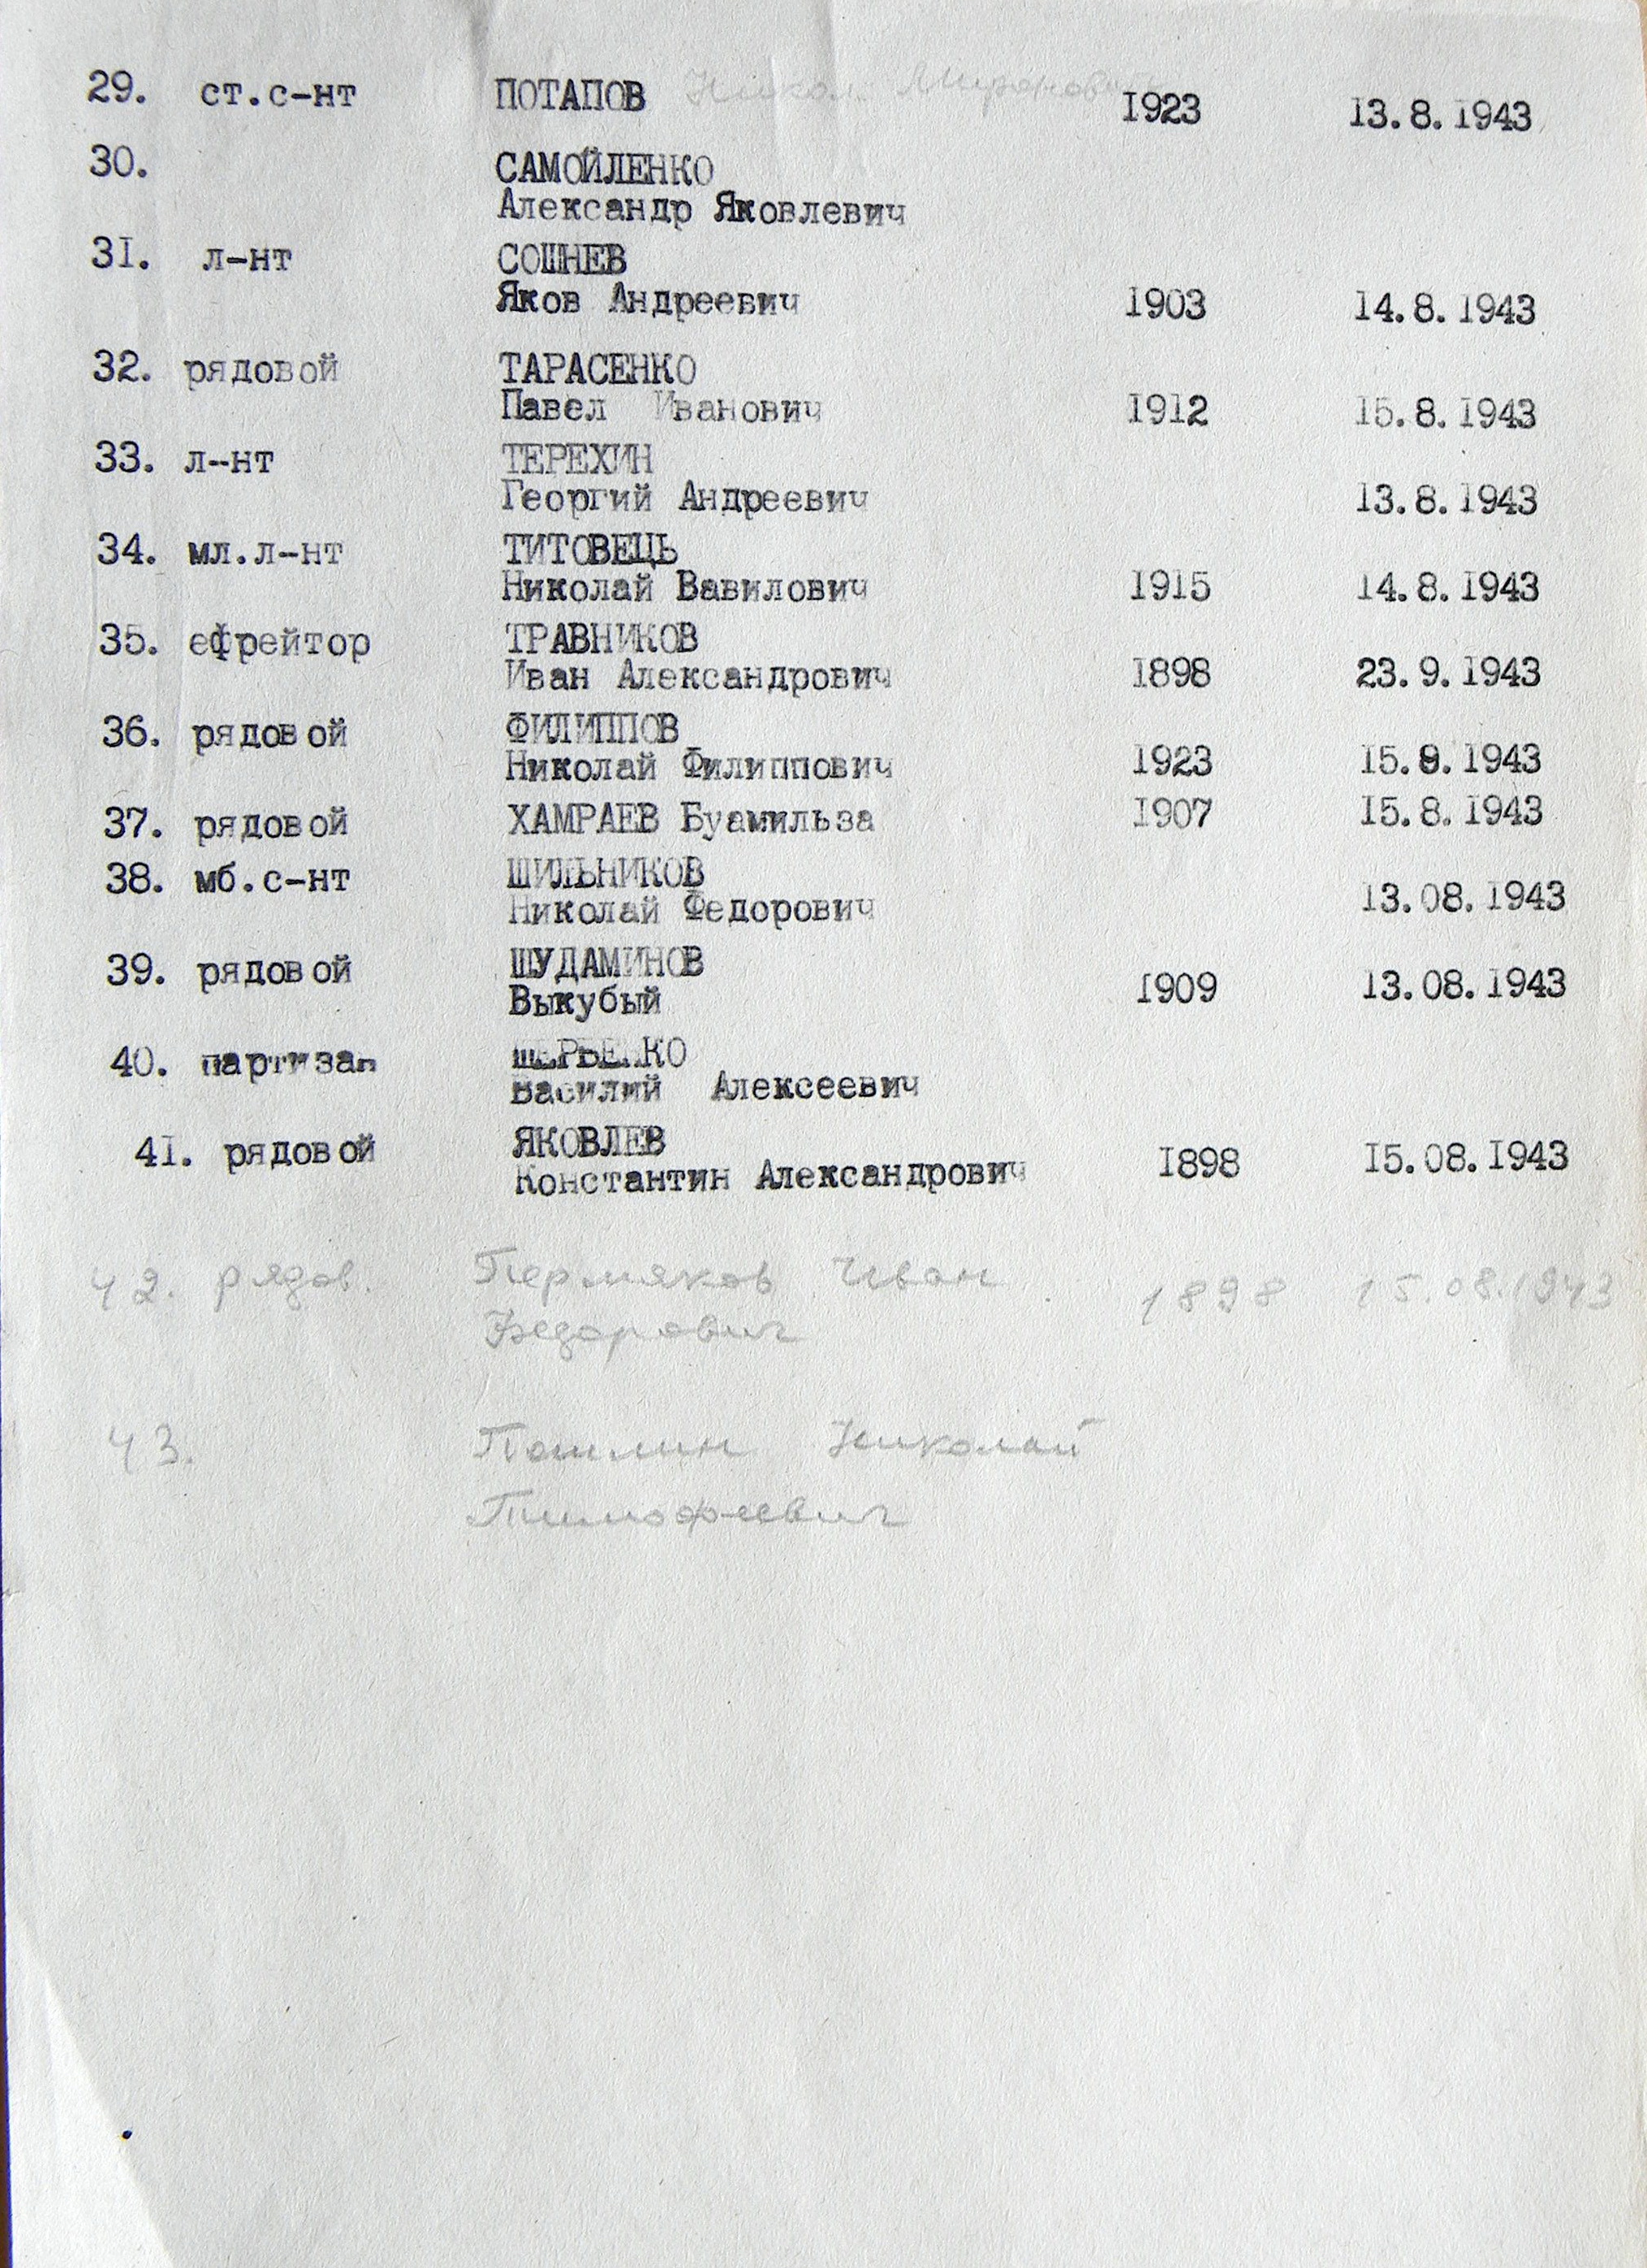 29. ст.с-нт ПОТАПОВ Микол. Миронович 1923 13.8.1943
30. САМОЙЛЕНКО
Александр Яковлевич
31. л-нт СОШНЕВ
Яков Андреевич 1903 14.8.1943
32. рядовой ТАРАСЕНКО
Павел Иванович 1912 15.8.1943
33. л-нт ТЕРЕХИН
Георгий Андреевич 13.8.1943
34. мл.л-нт ТИТОВЕЦЬ
Николай Вавилович 1915 14.8.1943
35. ефрейтор ТРАВНИКОВ
Иван Александрович 1898 23.9.1943
36. рядовой ФИЛИППОВ
Николай Филиппович 1923 15.8.1943
37. рядовой ХАМРАЕВ Буамильза 1907 15.8.1943
38. мб.с-нт ШИЛЬНИКОВ
Николай Федорович 13.08.1943
39. рядовой ШУДАМИНОВ
Выкубый 1909 13.08.1943
40. партизан
Василий Алексеевич
41. рядовой ЯКОВЛЕВ
Константин Александрович 1898 15.08.1943
42. рядов. Пермяков Иван 1898 15.08.1943
Федорович
43. Николай
Тимофеевич